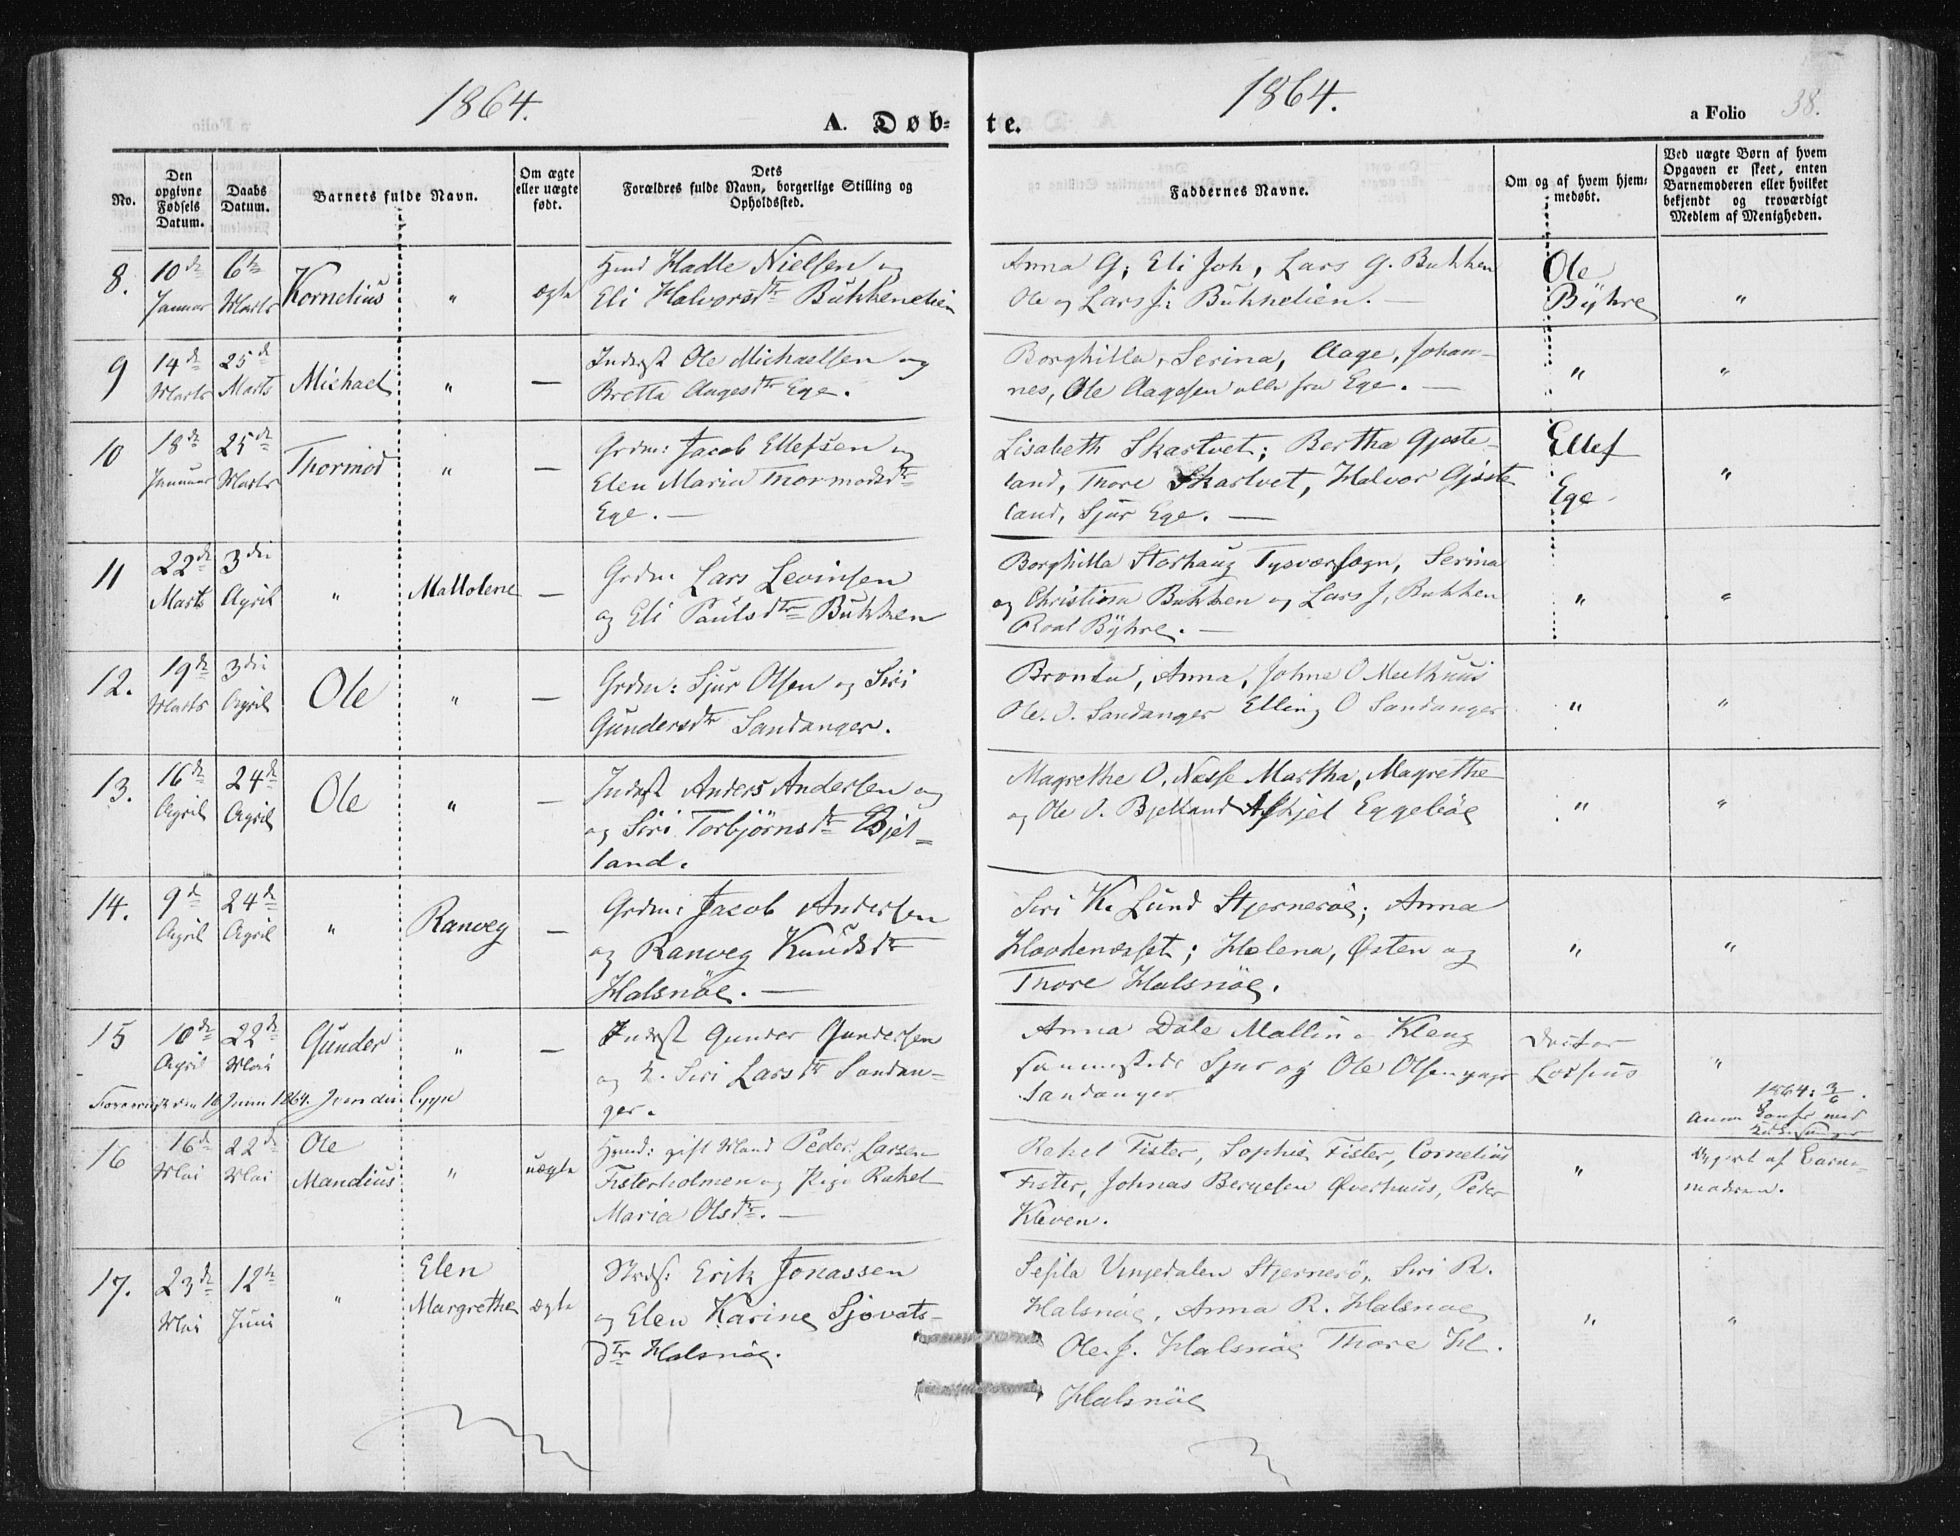 1864.
A. Døb-
1864.
te.
a Folio 38.
No.
Den opgivne Fødsels Datum.
Daabs Datum.
Barnets fulde Navn.
Om ægte eller uægte født.
Dets Forældres fulde Navn, borgerlige Stilling og Opholdssted.
Faddernes Navne.
Om og af hvem hjemmedøbt.
Ved uægte Børn af hvem Opgaven er skeet, enten Barnemoderen eller hvilket bekjendt og troværdigt Medlem af Menigheden.
8. 10de Januar 6te Marts Kornelius " ægte
Hmd Hadle Nielsen og
Eli Halvorsdtr Bukkenelien
Anna G; Eli Joh, Lars G. Bukken
Ole og Lars J: Bukkelien. —
Ole
Byhre "
9 14de Marts 25de Marts Michael " —
Inderst Ole Michaelsen og
Bretta Aagesdtr Ege.
Borghilla, Serina, Aage, Johan-
nes, Ole Aagesen alle fra Ege. —
" "
10 18de Januar 25de Marts Thormod " —
Grdm: Jacob Ellefsen og
Elen Maria Thormodsdtr
Ege. —
Lisabeth Skartvet; Bertha Gjøste-
land, Thore Skartvet, Halvor Gjøste
land, Sjur Ege. —
Ellef
Ege "
11 22de Marts 3die April " Mallolene —
Grdm: Lars Levinsen
og Eli Paulsdtr Bukken
Borghilla Storhaug Tysværsogn, Serina
og Christina Bukken og Lars J. Bukken
Roal Byhre. —
" "
12. 19de Marts 3die April Ole " —
Grdm: Sjur Olsen og Siri
Gundersdtr Sandanger.
Bronla, Anna, Johne O Meethuus
Ole. O. Sandanger Elling O Sandanger
" "
13. 16de April 24de April Ole " —
Inderst Anders Andersen og
og Siri Torbjørnsdtr Bjel-
land.
Magrethe O. Nesse Martha, Magrethe
og Ole O. Bjelland Askjel Eggebøe
" "
14. 9de April 24de April " Ranveg —
Grdm: Jacob Andersen
og Ranveg Knudsdtr
Halsnöe. —
Siri K. Lund Stjernerøe; Anna
Hovdenesset; Helena, Østen og
Thore Halsnöe.
" "
15 10de April 22de Mai Gunder " —
Inderst Gunder Gundersen
og K. Siri Larsdtr Sandan-
ger.
Anna Dale Mallin og Kleng
sammesteds Sjur og Ole Olsen
Sandanger
Doctor "
1864: 3/6.
16 16de Mai 22de Mai Ole Mandius " uægte
Hmd: gift Mand Peder Larsen
Fisterholmen og Pige Rakel
Maria Olsdtr. —
Rakel Fister, Sophie Fister, Cornelius
Fister, Johnas Bergesen Øverhuus, Peder
Kleven.
" Opgivet af Barne-
moderen.
17. 23de Mai 12te Juni " Elen Margrethe ægte
Strds: Erik Jonassen
og Elen Karine Sjovats-
dtr Halsnöe.
Sesila Vinjedalen Stjernerö, Siri R.
Halsnöe, Anna R. Halsnoe
Ole. J. Halsnöe Thore H.
Halsnöe
" "